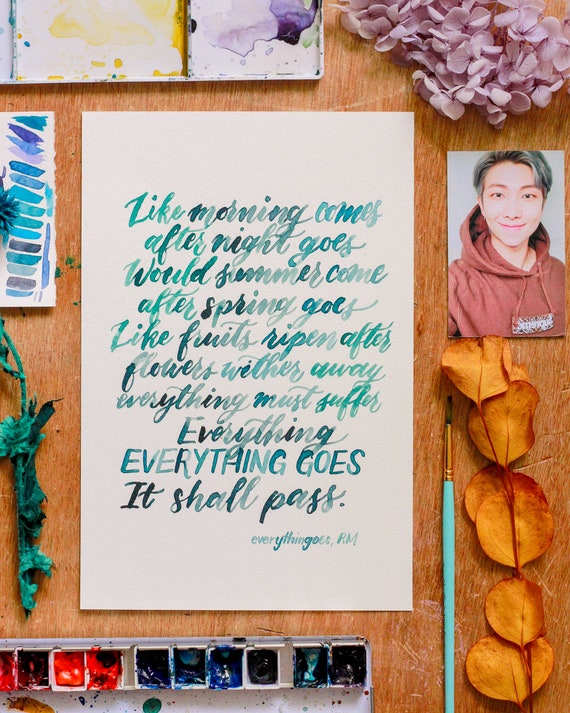 Like morning comes
after night goes
Would summer come
after spring goes
Like fruits ripen after
flowers wither away
everything must suffer
Everything
EVERYTHING GOES
It shall pass.
everythingoes, RM